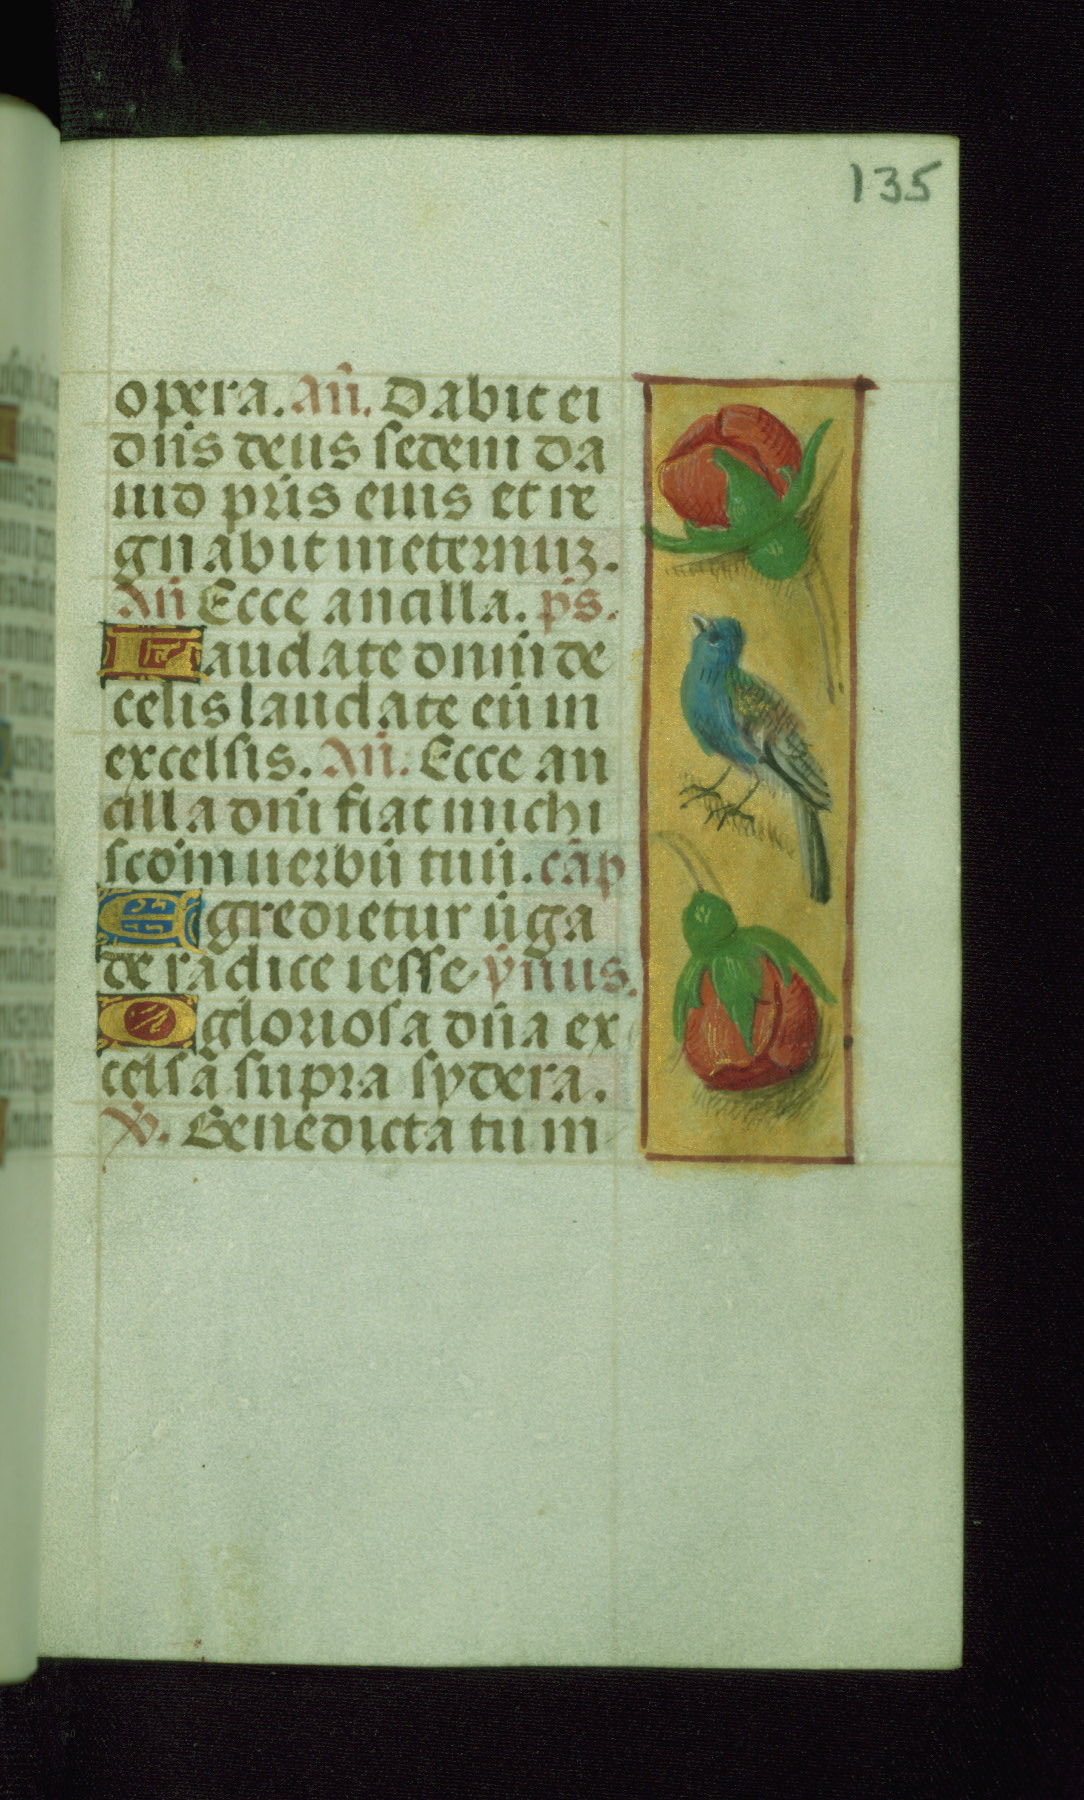 135
opera. Añ. Dabit ei
dñs deus sedem da
uid pr̃is eius et re
gnabit in eternuȝ.
Añ Ecce ancilla. p̃s.
Laudate dominū de
celis laudate eū in
excelsis. Añ. Ecce an
cilla dñi fiat michi
scd̃m uerbū tuū. cãp
Egredietur ũga
de radice iesse ỹnus.
O gloriosa dña ex
celsa supra sydera.
V̓. Benedicta tu in